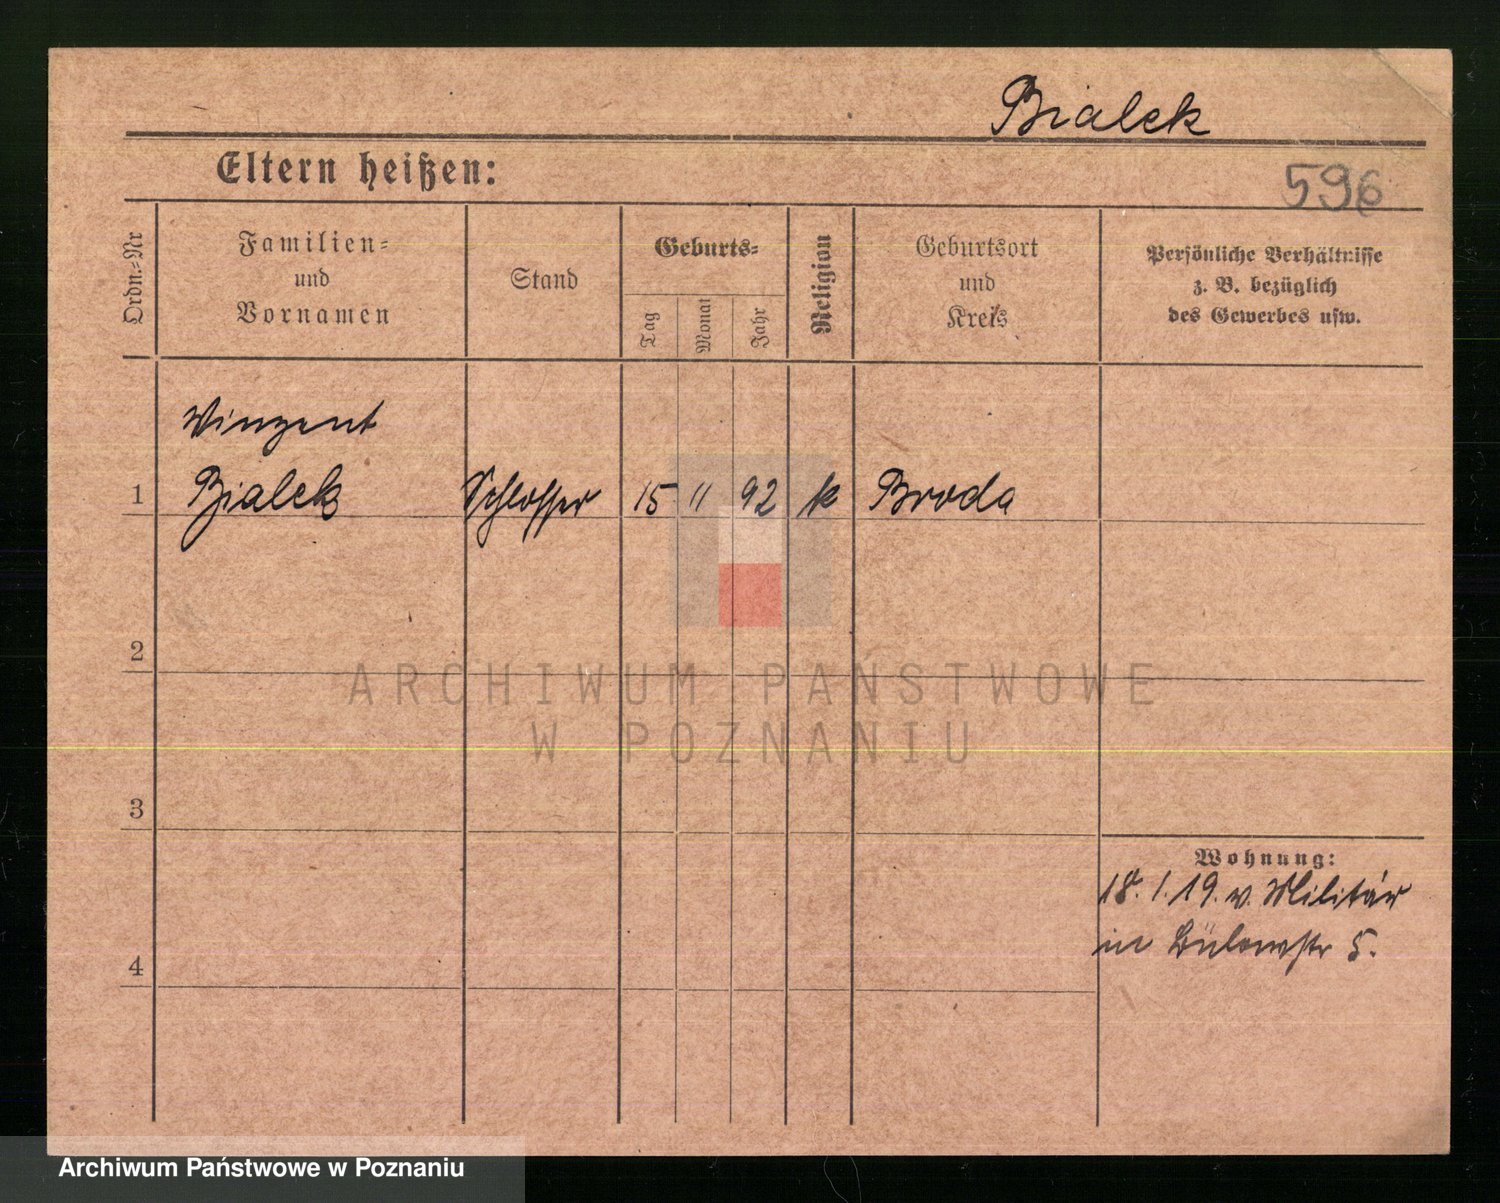 Bialek
Eltern heißen:
596
Ordn.-Nr
Familien-
und
Vornamen
Stand
Geburts-
Tag
Monat
Jahr
Religion
Geburtsort
und
Kreis
Persönliche Verhältnisse
z. B. bezüglich
des Gewerbes usw.
Winzent
1 Bialek Schlosser 15 11 92 k Broda
2
3
4
Wohnung:
18. 1. 19. v. Militär
in Bülowstr 5.
ARCHIWUM PAŃSTWOWE
W POZNANIU
Archiwum Państwowe w Poznaniu